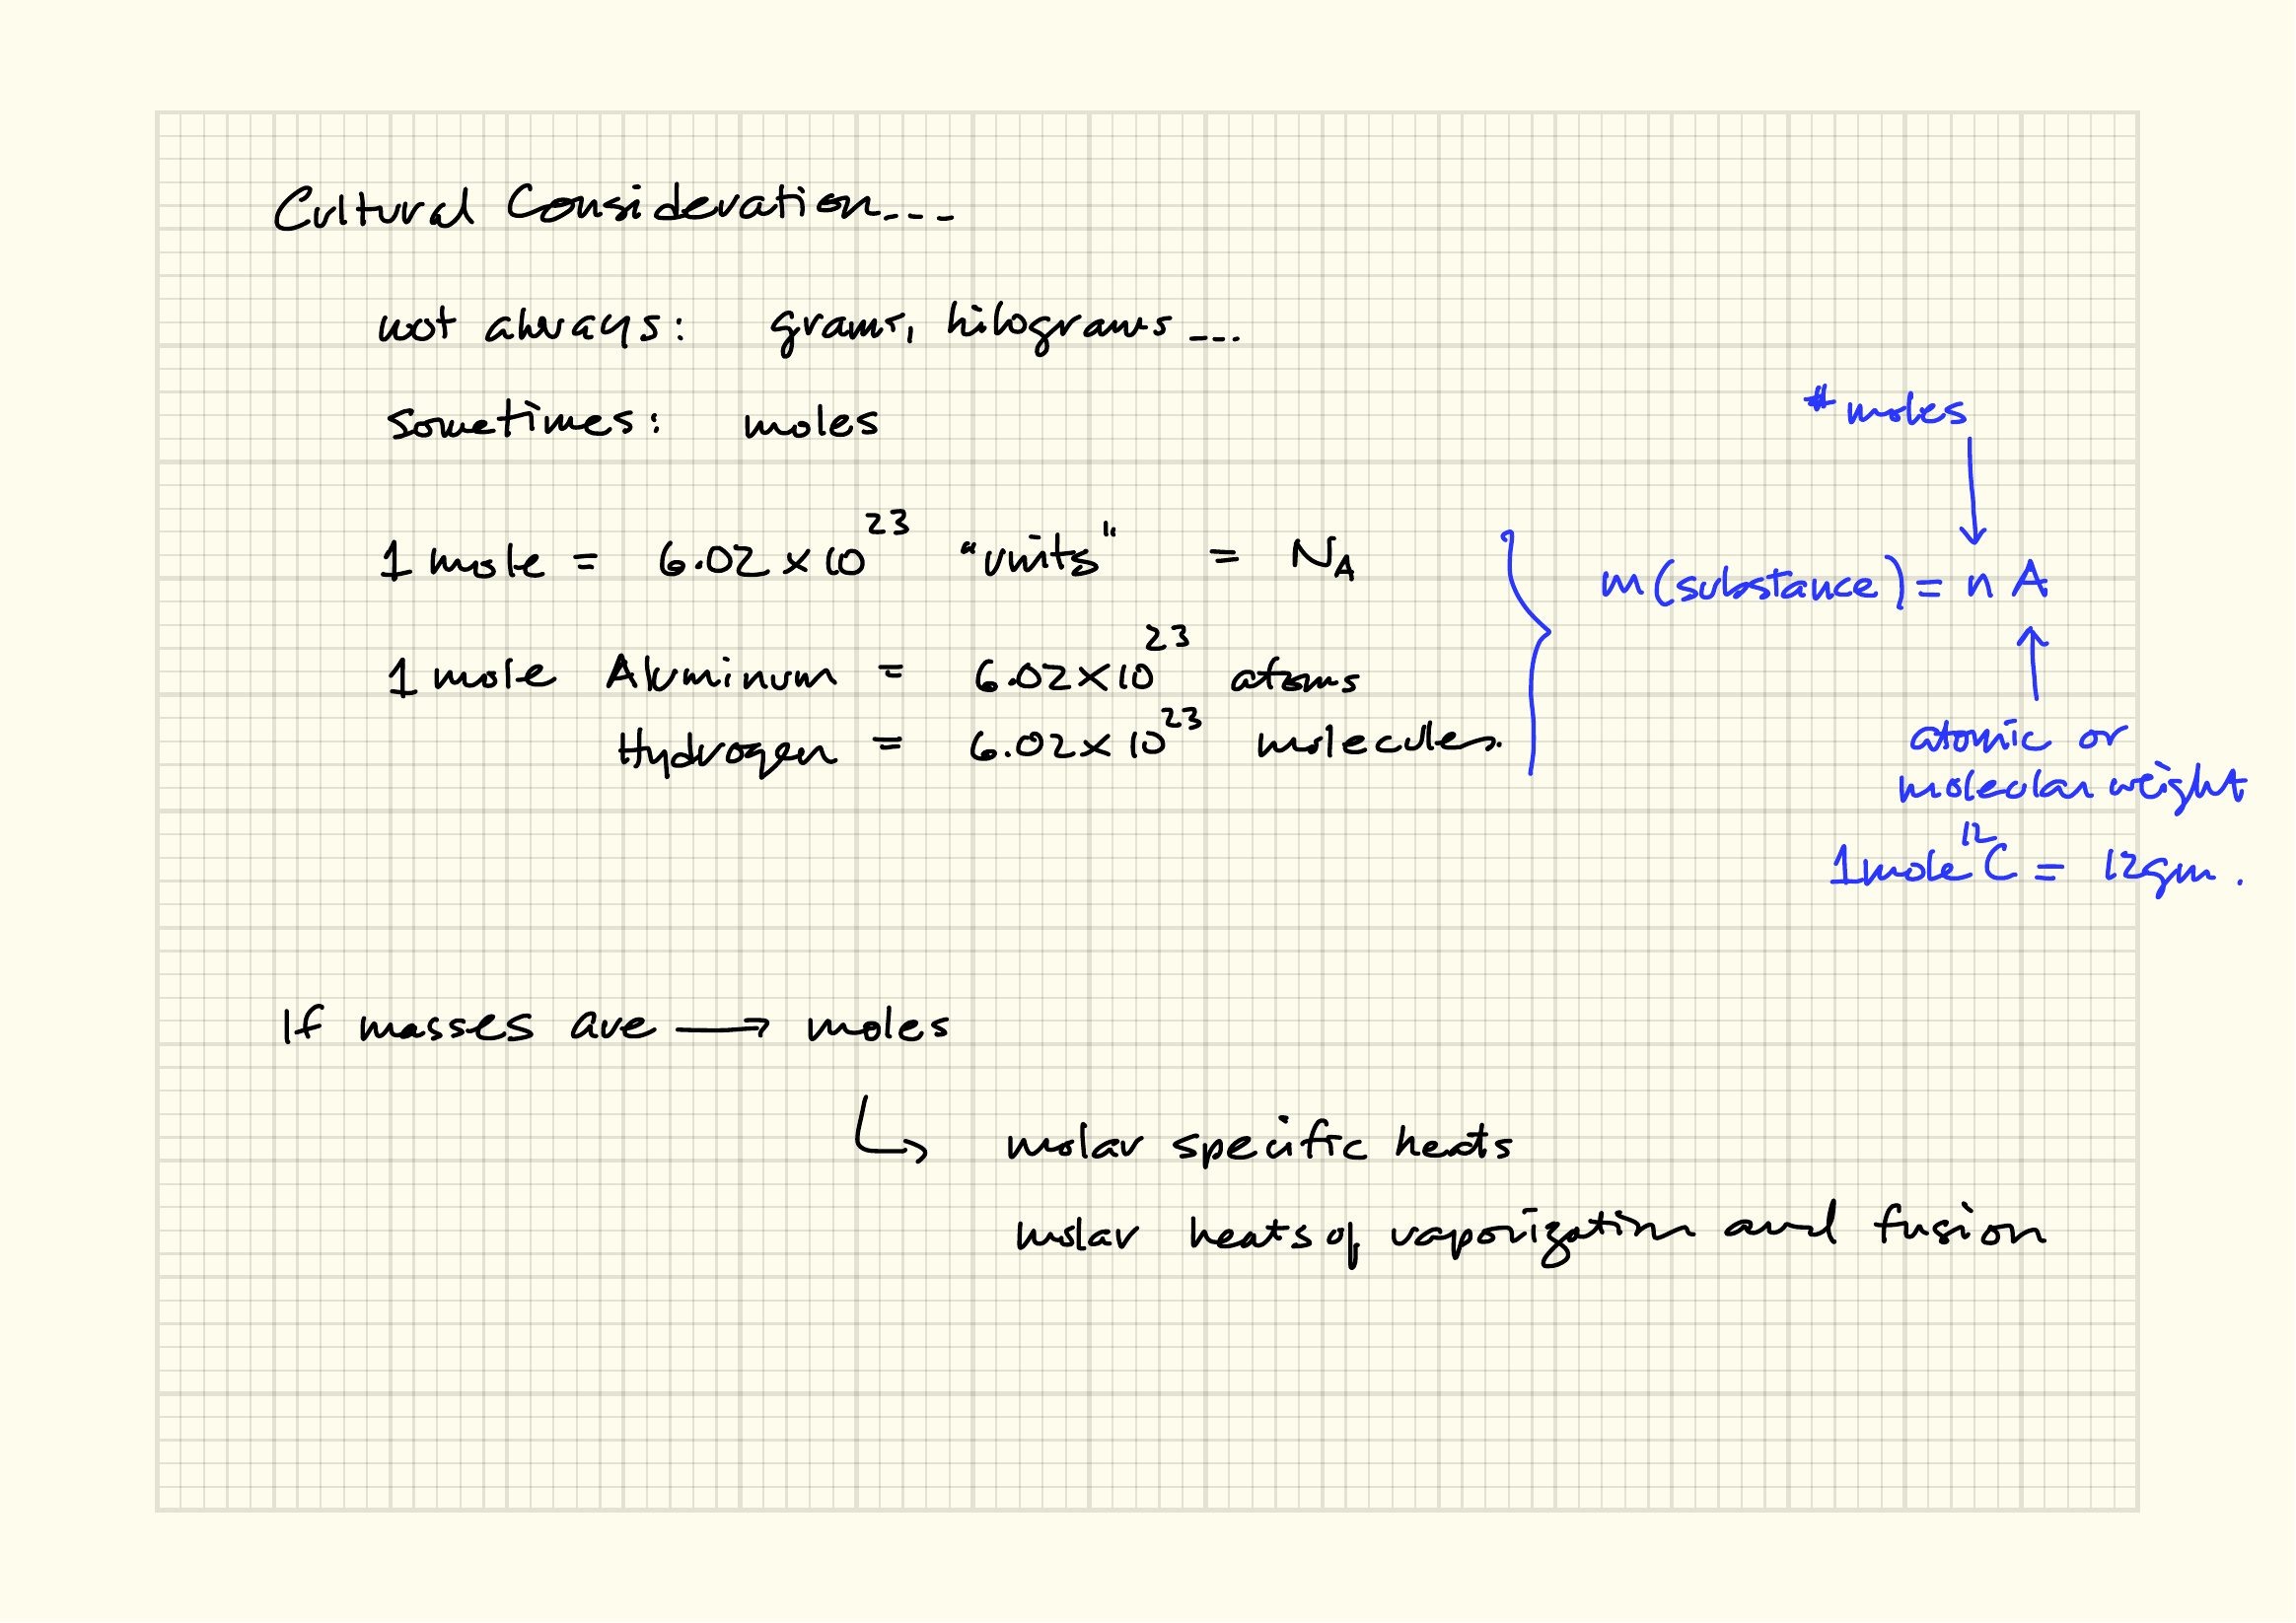 Cultural Consideration...
not always: grams, kilograms...
sometimes: moles
1 mole = 6.02 × 10²³ "units" = N_A
1 mole Aluminum = 6.02 × 10²³ atoms
Hydrogen = 6.02 × 10²³ molecules.
# moles
m (substance) = n A
atomic or
molecular weight
1 mole ¹²C = 12 gm.
If masses are → moles
↳ molar specific heats
molar heats of vaporization and fusion